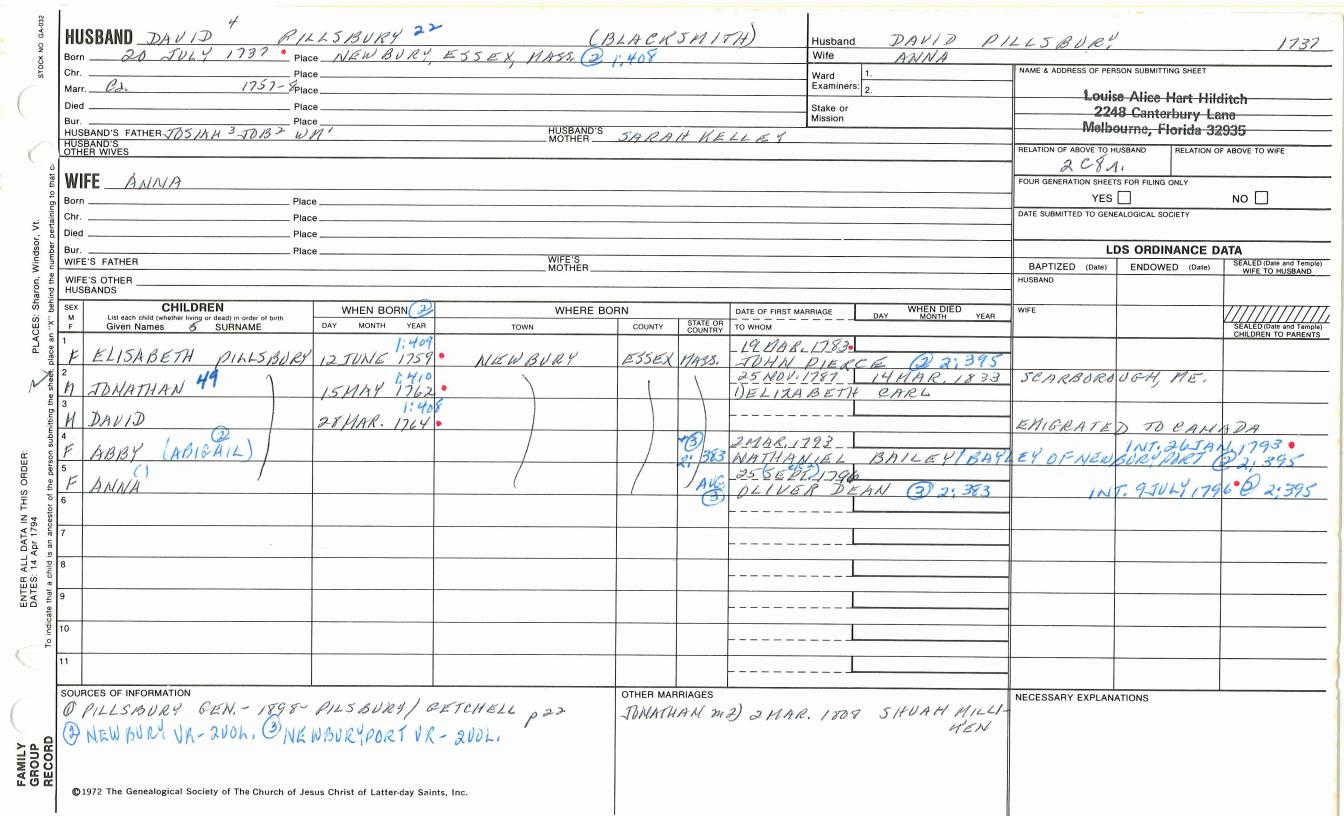 STOCK NO. GA-032
HUSBAND DAVID 4 PILLSBURY 22 (BLACKSMITH)
Born 20 JULY 1737 Place NEWBURY, ESSEX, MASS. ② 1:408
Chr. Place
Marr. Ca. 1757-8 Place
Died Place
Bur. Place
HUSBAND'S FATHER JOSIAH 3 JOB 2 WM 1 HUSBAND'S MOTHER SARAH KELLEY
HUSBAND'S OTHER WIVES
Husband DAVID PILLSBURY 1737
Wife ANNA
Ward Examiners: 1.
2.
Stake or Mission
NAME & ADDRESS OF PERSON SUBMITTING SHEET
Louise Alice Hart Hilditch
2248 Canterbury Lane
Melbourne, Florida 32935
RELATION OF ABOVE TO HUSBAND RELATION OF ABOVE TO WIFE
2C8R.
FOUR GENERATION SHEETS FOR FILING ONLY
YES NO
DATE SUBMITTED TO GENEALOGICAL SOCIETY
WIFE ANNA
Born Place
Chr. Place
Died Place
Bur. Place
WIFE'S FATHER WIFE'S MOTHER
WIFE'S OTHER HUSBANDS
LDS ORDINANCE DATA
BAPTIZED (Date) ENDOWED (Date) SEALED (Date and Temple) WIFE TO HUSBAND
HUSBAND
WIFE
SEALED (Date and Temple) CHILDREN TO PARENTS
SEX M F
CHILDREN
List each child (whether living or dead) in order of birth
Given Names 5 SURNAME
WHEN BORN ②
DAY MONTH YEAR
WHERE BORN
TOWN COUNTY STATE OR COUNTRY
DATE OF FIRST MARRIAGE
TO WHOM
WHEN DIED
DAY MONTH YEAR
1 1:409 19 MAR. 1783
F ELISABETH PILLSBURY 12 JUNE 1759 NEWBURY ESSEX MASS. JOHN PIERCE ② 2:395
2 1:410 25 NOV. 1787 14 MAR. 1833 SCARBOROUGH, ME.
M JONATHAN 49 15 MAY 1762 1) ELIZABETH CARL
3 1:408
M DAVID 28 MAR. 1764 EMIGRATED TO CANADA
4 ② ③ 2 MAR. 1793 INT. 26 JAN. 1793
F ABBY (ABIGAIL) 2:383 NATHANIEL BAILEY/BAYLEY OF NEWBURYPORT ② 2:395
5 25 SEPT. 1796
F ANNA AUG. ③ OLIVER DEAN ③ 2:383 INT. 9 JULY 1796 ② 2:395
6
7
8
9
10
11
SOURCES OF INFORMATION
① PILLSBURY GEN.- 1898- PILSBURY/GETCHELL p 22
② NEWBURY VR- 2VOL. ③ NEWBURYPORT VR- 2VOL.
OTHER MARRIAGES
JONATHAN m 2) 2 MAR. 1809 SHUAH MILLI-
KEN
NECESSARY EXPLANATIONS
©1972 The Genealogical Society of The Church of Jesus Christ of Latter-day Saints, Inc.
FAMILY GROUP RECORD
ENTER ALL DATA IN THIS ORDER:
DATES: 14 Apr 1794
PLACES: Sharon, Windsor, Vt.
To indicate that a child is an ancestor of the person submitting the sheet, place an "X" behind the number pertaining to that